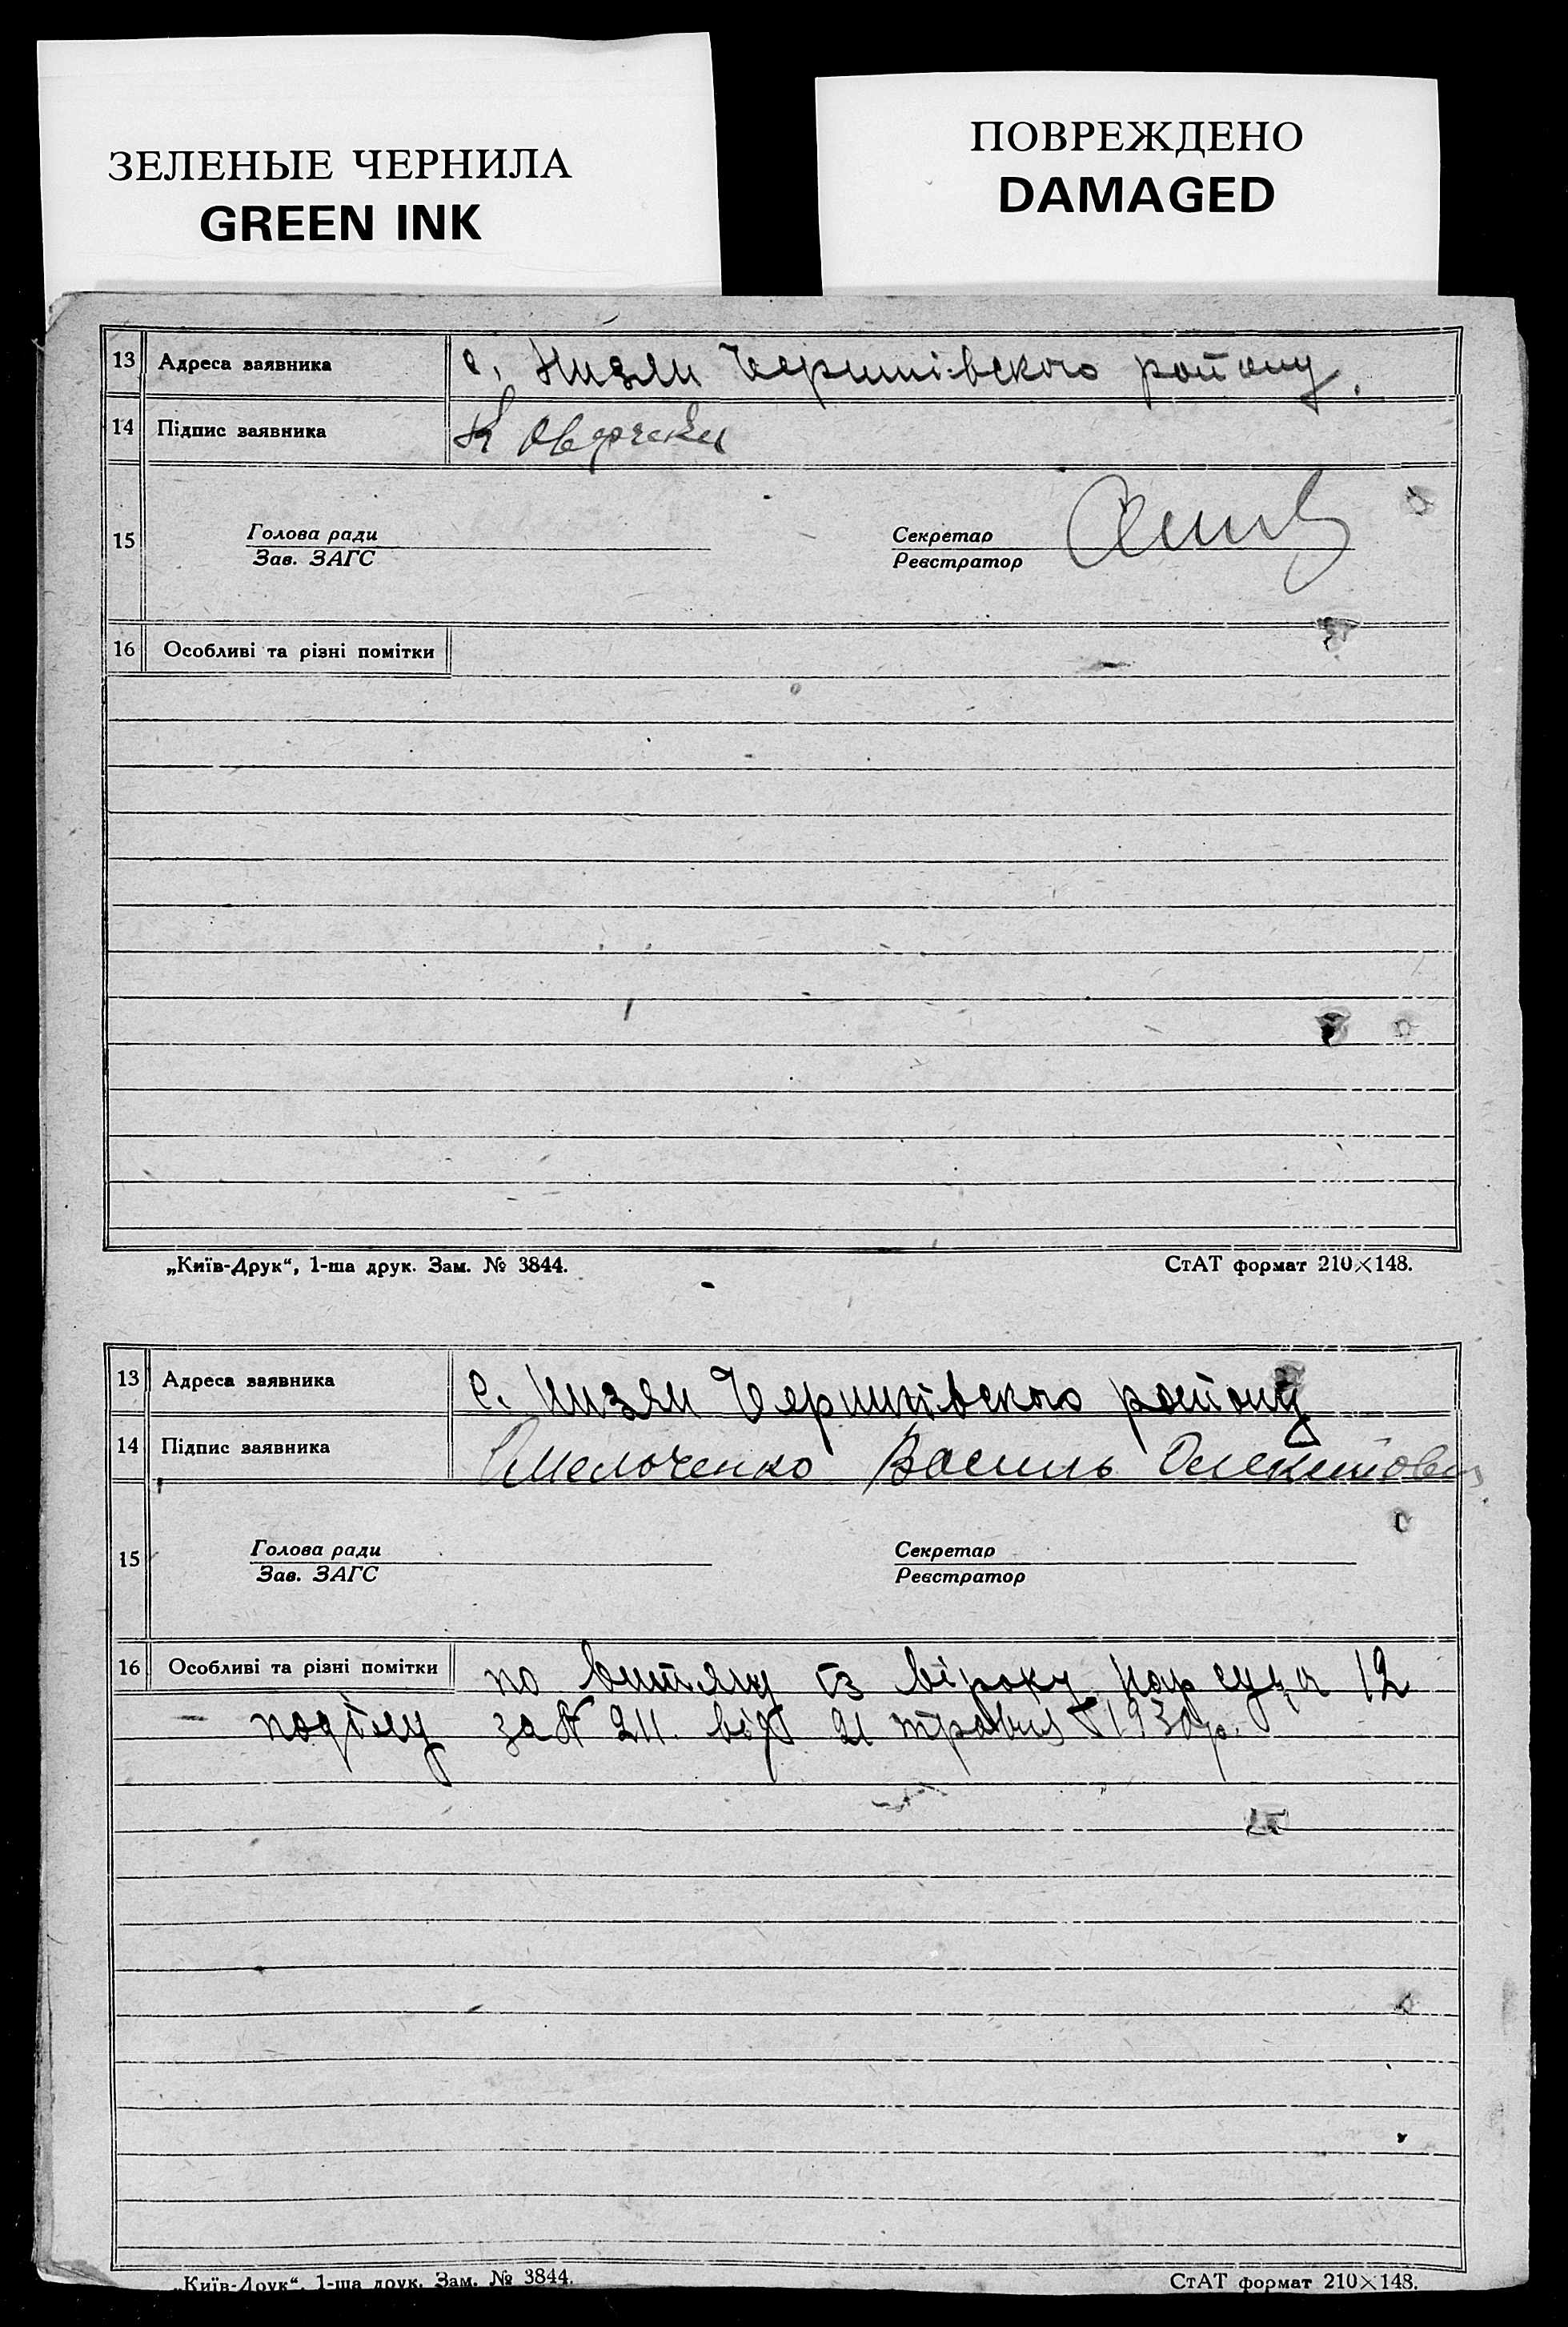 ЗЕЛЕНЫЕ ЧЕРНИЛА
GREEN INK
ПОВРЕЖДЕНО
DAMAGED
13 Адреса заявника с.
14 Підпис заявника
15 Голова ради Секретар
Зав. ЗАГС Реєстратор
16 Особливі та різні помітки
„Київ-Друк“, 1-ша друк. Зам. № 3844. СтАТ формат 210×148.
13 Адреса заявника с. району
14 Підпис заявника Василь
15 Голова ради Секретар
Зав. ЗАГС Реєстратор
16 Особливі та різні помітки по витягу із віроку нарсуда 12
поділу за № 211. від 21 травня 1930р.
„Київ-Друк“, 1-ша друк. Зам. № 3844. СтАТ формат 210×148.